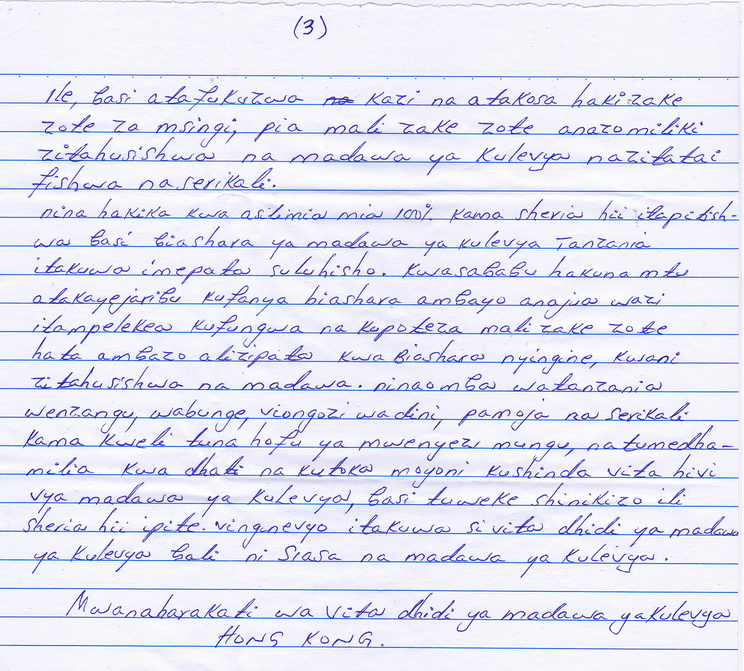 (3)
Ile, basi atafukuzwa na kazi na atakosa haki zake
zote za msingi, pia mali zake zote anazomiliki
zitahusishwa na madawa ya kulevya nazitatai
fishwa na serikali.
nina hakika kwa asilimia mia 100%. kama sheria hii itapitish-
wa basi biashara ya madawa ya kulevya Tanzania
itakuwa imepata suluhisho. kwasababu hakuna mtu
atakayejaribu kufanya biashara ambayo anajua wazi
itampelekea kufungwa na kupoteza mali zake zote
hata ambazo alizipata kwa Biashara nyingine, kwani
zitahusishwa na madawa. ninaomba watanzania
wenzangu, wabunge, viongozi wadini, pamoja na serikali
kama kweli tuna hofu ya mwenyezi mungu, natumedha-
milia kwa dhati na kutoka moyoni kushinda vita hivi
vya madawa ya kulevya, basi tuweke shinikizo ili
sheria hii ipite. vinginevyo itakuwa si vita dhidi ya madawa
ya kulevya bali ni siasa na madawa ya kulevya.
Mwanaharakati wa vita dhidi ya madawa yakulevya
HONG KONG.